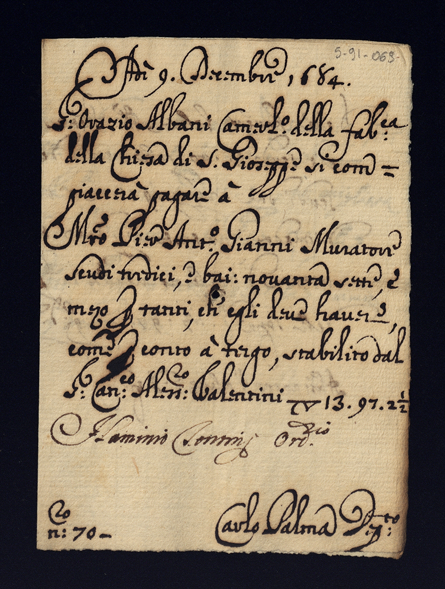 5-91-063-
Adì 9. Decembre, 1684.
S.r Orazio Albani Camerl.o della fab.ca
della Chiesa di S. Gioseppe si com=
piacerà pagare à
M.ro Pier Ant.o Gianni Muratore
scudi tredici, e bai: novanta sette, e
mezo p tanti, ch egli deve havere,
come p conto à tergo, stabilito dal
S.r Can.co Valentini 13. 97. 2½
Flaminio Ord.rio
n: 70-
Carlo Palma